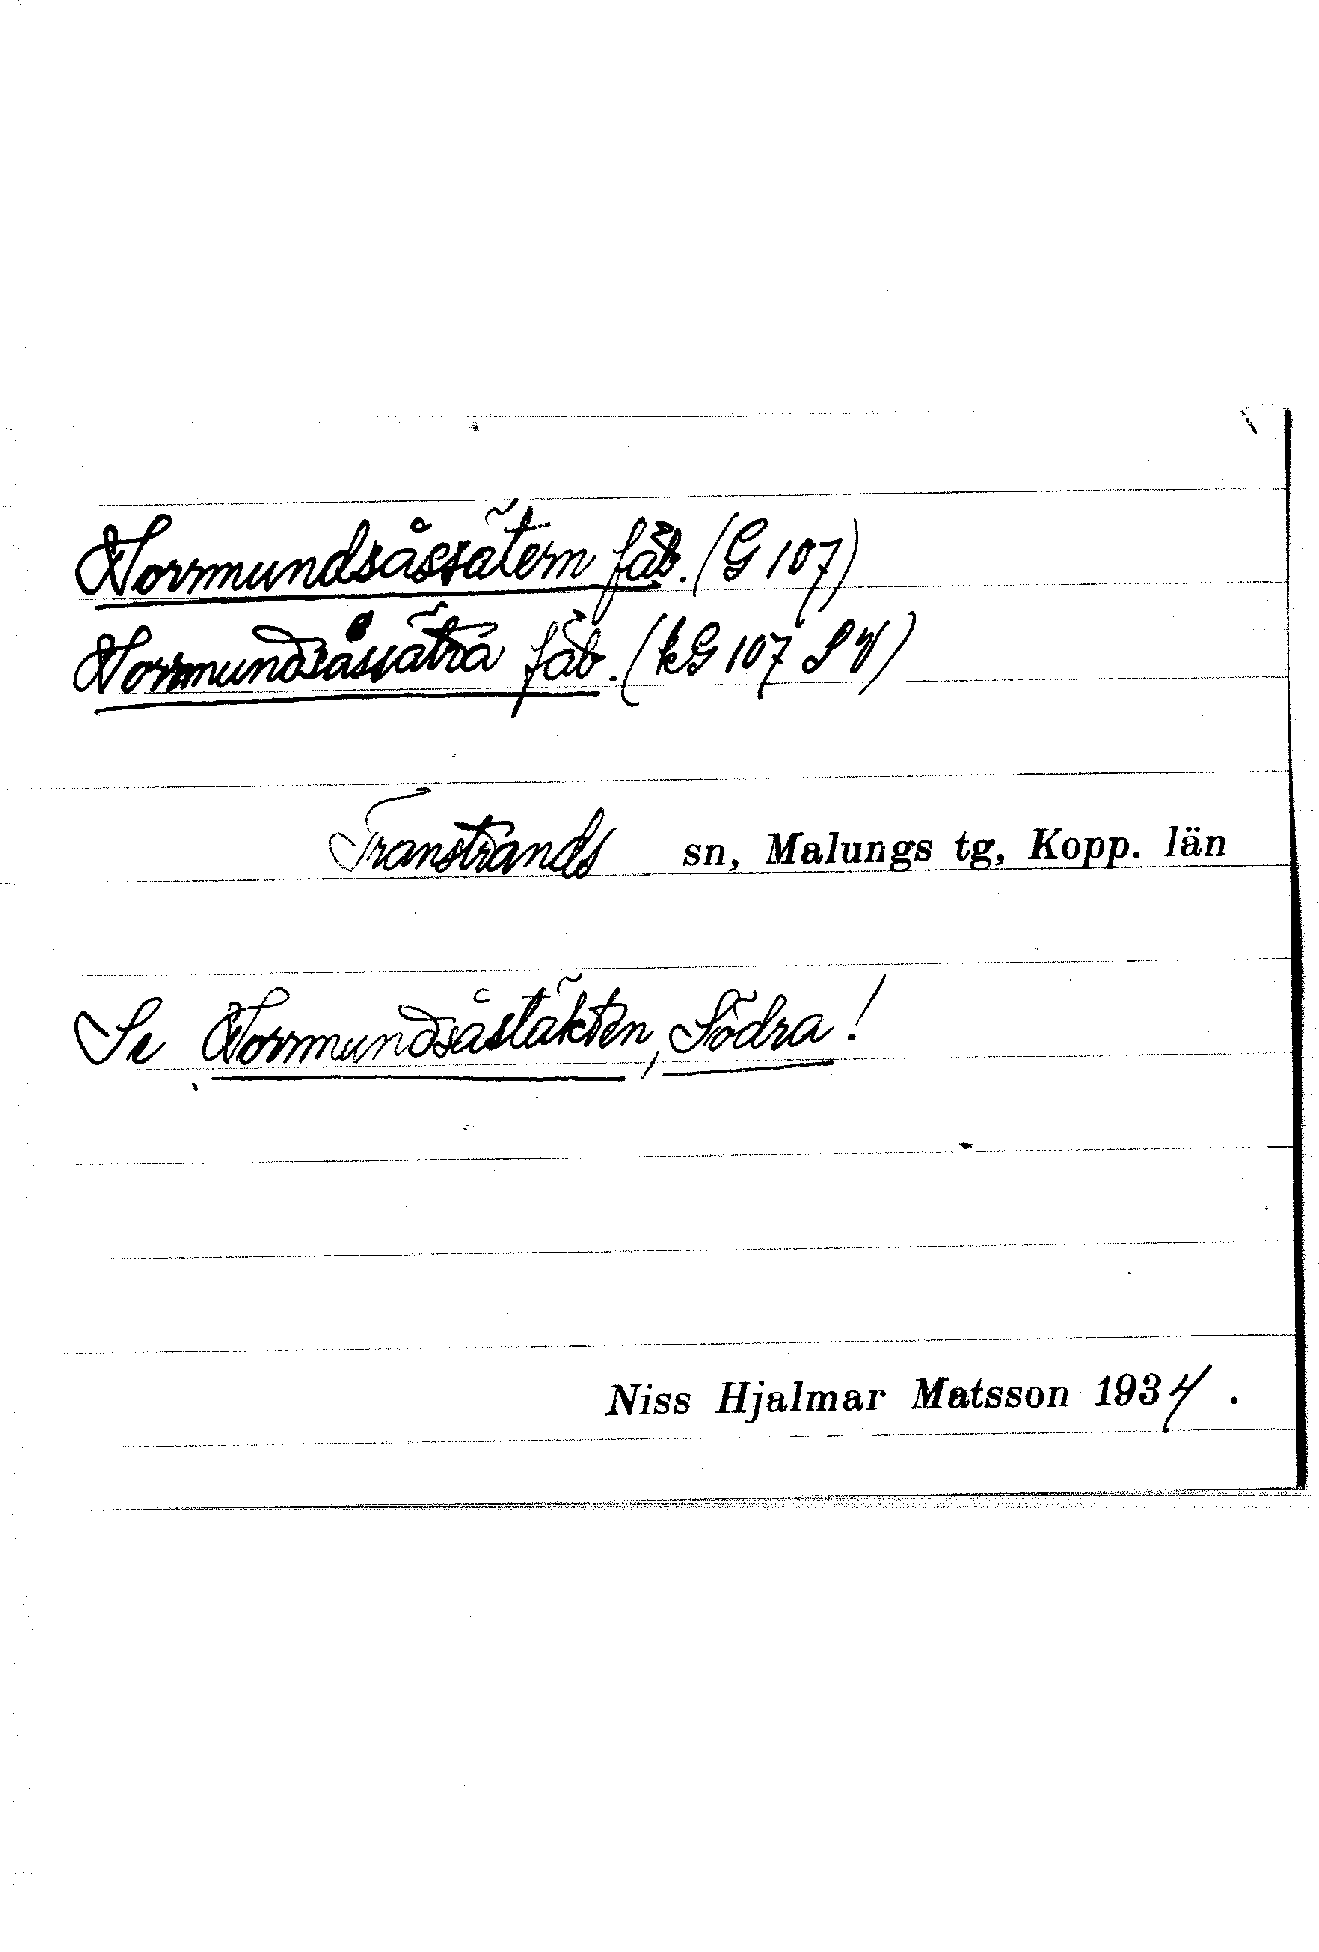 Hormundsåssätern fäb. (G 107)
Hormundsåssätra fäb. (kG 107 S V)
Transtrands sn, Malungs tg, Kopp. län
Se Hormundsåstäkten, Södra!
Niss Hjalmar Matsson 1934.